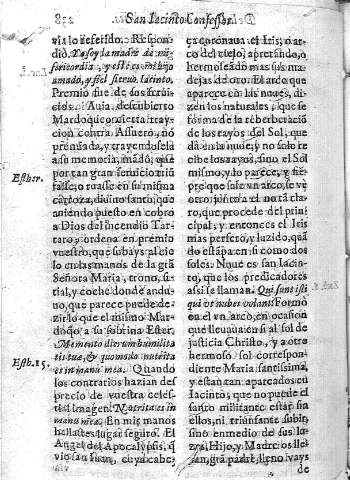 832 San Iacinto Confessor.
uia lo referido. Respon-
dió. Yo soy la madre de mi-
sericordia, y este es mi hijo
amado, y fiel sieruo, Iacinto.
Premio fue de sus serui-
cios. Auia descubierto
Mardoqueo cierta tray-
cion contra Assuero, no
premiada, y trayendosela
a su memoria, mādò, que
por tan gran seruicio triū
fasse, o ruasse en su misma
carroza, diuino santo, que
auiendo puesto en cobro
a Dios del incendio Tar-
taro, y ordena en premio
vuestro, que subays al cie
lo en las manos de la grā
Señora Maria, trono, si-
tial, y coche donde andu-
uo, que parece puede de-
zirlo que el mismo Mar-
doqueo, a su sobrina Ester.
Esther. 15. Memento dierum humilita
tis tuæ, & quomodo nutrita
es in manu mea. Quando
los contrarios hazian des
precio de vuestra celes-
tial Imagen. Nutrita es in
manu mea. En mis manos
hallastes lugar seguro. El
Angel del Apocalypsis, q̄
vio san Iuan, cuya cabe-
ça coronaua el Iris, o ar-
co del cielo, apretando, o
hermoseado mas sus ma-
dejas de oro. El arco que
aparece en las nuues, di-
zen los naturales, que se
forma de la reberberació
de los rayos del Sol, que
dā en la nuue, y no solo re
cibe los rayos, sino el Sol
mismo, y lo parece, y siē-
pre que sale vn arco, se vè
otro junto a el no tā cla-
ro, que procede del prin-
cipal, y entonces el Iris
mas perfeto, y luzido, quā
do estāpa en si como dos
soles. Nuue es san Iacin-
to, que los predicadores
assi se llaman. Qui sunt isti
qui vt nubes volant? Formò
en el vn arco, en ocasion
que lleuaua en si al sol de
justicia Christo, y a otro
hermoso sol correspon-
diente Maria santissima,
y están tan aparcados en
Iacinto, que no puede el
santo militante estar sin
ellos, ni triunfante subir,
sino en medio de sus la-
zos, Hijo, y Madre os lle-
uan, grā padre, lleno vays
de